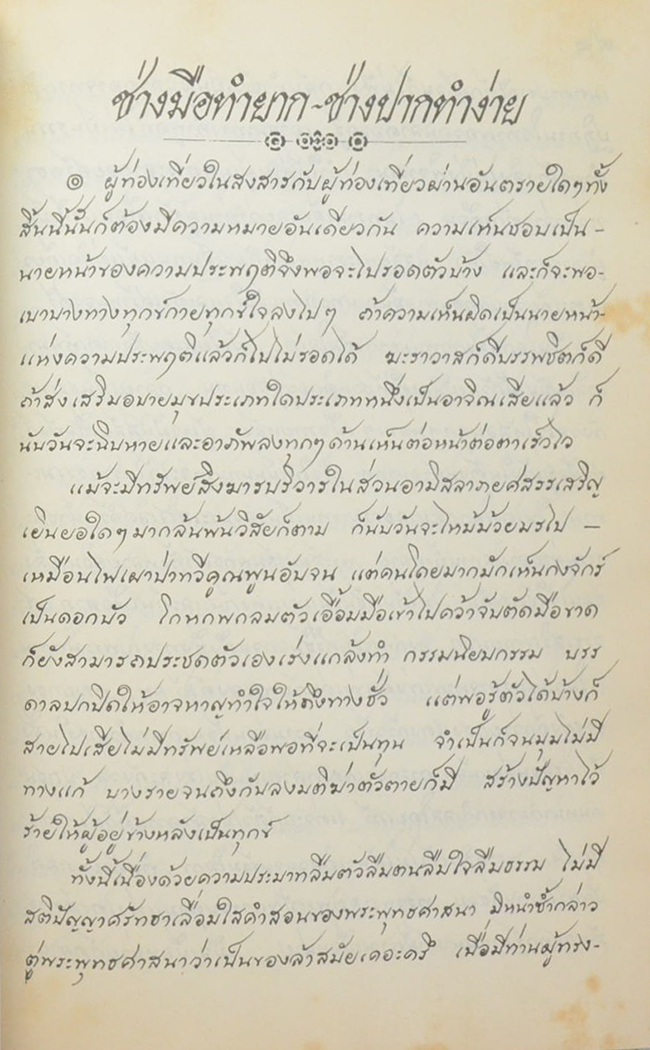 ช่างมือทำยาก-ช่างปากทำง่าย
๏ ผู้ท่องเที่ยวในสงสารกับผู้ท่องเที่ยวผ่านอันตรายใดๆทั้ง
สิ้นนี้นั้นก็ต้องมีความหมายอันเดียวกัน ความเห็นชอบเป็น-
นายหน้าของความประพฤติจึงพอจะไปรอดตัวบ้าง และก็จะพอ-
เบาบางทางทุกข์กายทุกข์ใจลงไปๆ ถ้าความเห็นผิดเป็นนายหน้า-
แห่งความประพฤติแล้วก็ไปไม่รอดได้ ฆะราวาสก็ดีบรรพชิตก็ดี
ถ้าส่งเสริมอบายมุขประเภทใดประเภทหนึ่งเป็นอาจิณเสียแล้ว ก็
นับวันจะฉิบหายและอาภัพลงทุกๆด้านเห็นต่อหน้าต่อตาเร็วไว
แม้จะมีทรัพย์สิงฆารบริวารในส่วนอามิสลาภยศสรรเสริญ
เยินยอใดๆมากล้นพ้นวิสัยก็ตาม ก็นับวันจะไหม้ม้วยมรไป -
เหมือนไฟเผาป่าทวีคูณพูนอับจน แต่คนโดยมากมักเห็นกงจักร์
เป็นดอกบัว โกหกพกลมตัวเอื้อมมือเข้าไปคว้าจับตัดมือขาด
ก็ยังสามารถประชดตัวเองเร่งแกล้งทำ กรรมนิยมกรรม บรร
ดาลปกปิดให้อาจหาญทำใจให้ถึงทางชั่ว แต่พอรู้ตัวได้บ้างก็
สายไปเสียไม่มีทรัพย์เหลือพอที่จะเป็นทุน จำเป็นก็จนมุมไม่มี
ทางแก้ บางรายจนถึงกับลงมติฆ่าตัวตายก็มี สร้างปัญหาไว้
ร้ายให้ผู้อยู่ข้างหลังเป็นทุกข์
ทั้งนี้เนื่องด้วยความประมาทลืมตัวลืมตนลืมใจลืมธรรม ไม่มี
สติปัญญาศรัทธาเลื่อมใสคำสอนของพระพุทธศาสนา มิหนำซ้ำกล่าว
ตู่พระพุทธศาสนาว่าเป็นของล้าสมัยเคอะครึ เมื่อมีท่านผู้ทรง-